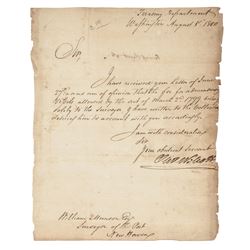 Treasury Department
Washington August 8th 1800
Sir,
I have received your letter of June
27th & am of opinion that the fee for admeasuring
Vessels allowed by the act of March 2d 1799 belongs
solely to the Surveyor & have written to the Collector
desiring him to account with you accordingly.
I am with consideration
Sir
Your obedient Servant
William Munson Esqr
Surveyor of the Port
New Haven